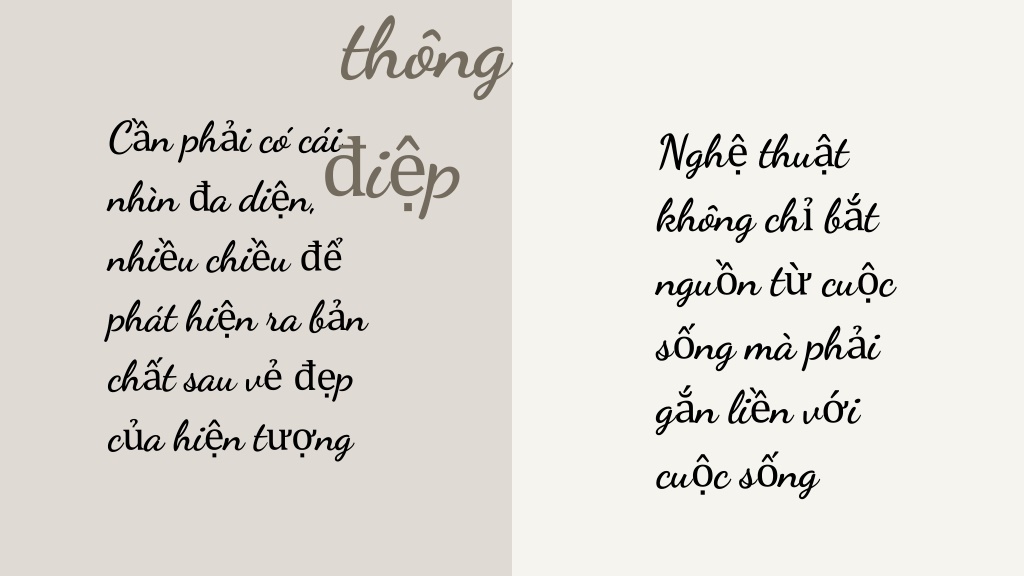 thông
điệp
Cần phải có cái
nhìn đa diện,
nhiều chiều để
phát hiện ra bản
chất sau vẻ đẹp
của hiện tượng
Nghệ thuật
không chỉ bắt
nguồn từ cuộc
sống mà phải
gắn liền với
cuộc sống